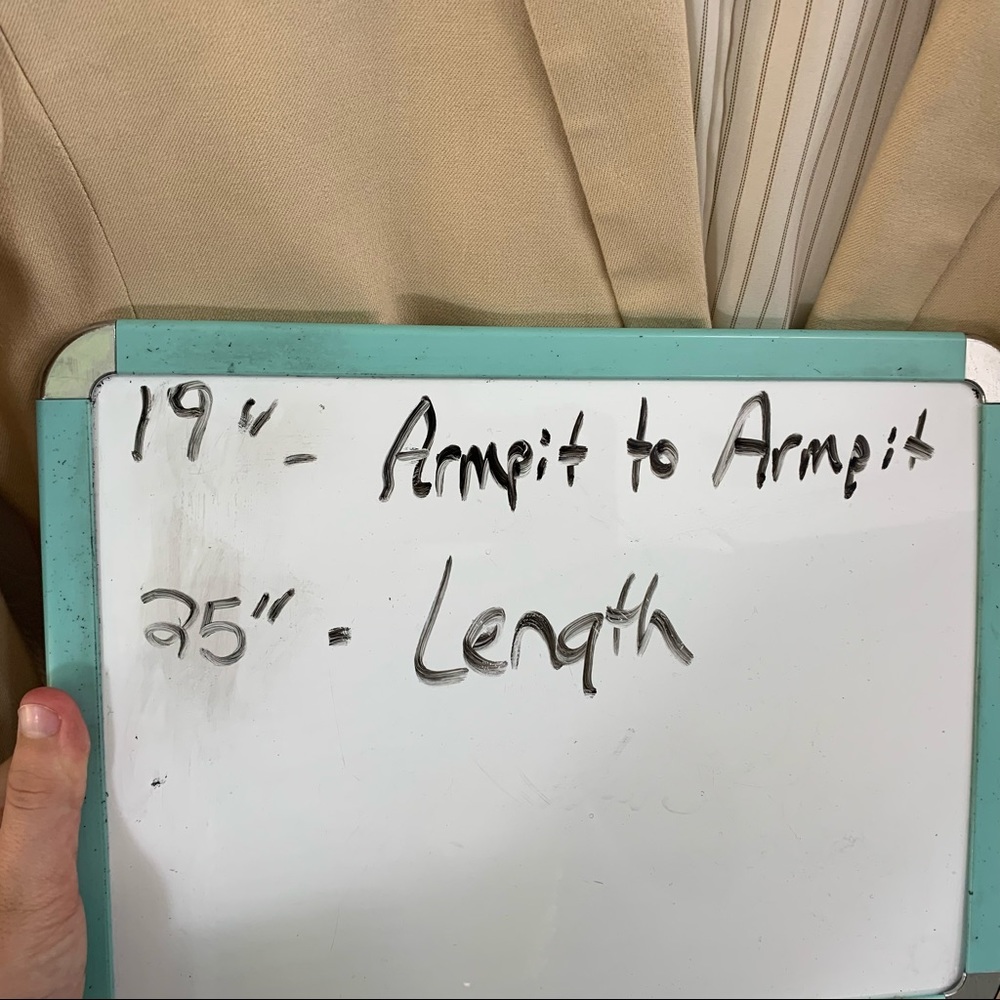 19" - Armpit to Armpit
25" - Length